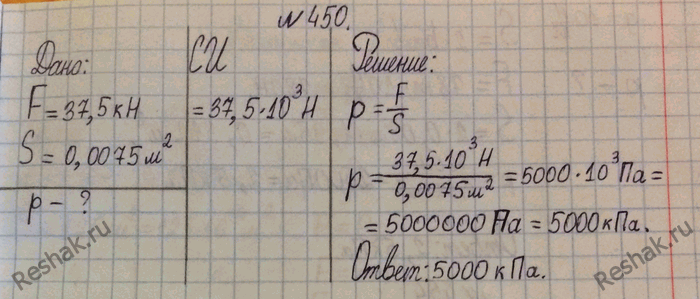 №450.
Дано:
F=37,5кН
S=0,0075м²
p-?
СИ
=37,5·10³Н
Решение:
p=F/S
p=37,5·10³Н/0,0075м²=5000·10³Па=
=5000000Па=5000кПа.
Ответ:5000кПа.
Reshak.ru
Reshak.ru